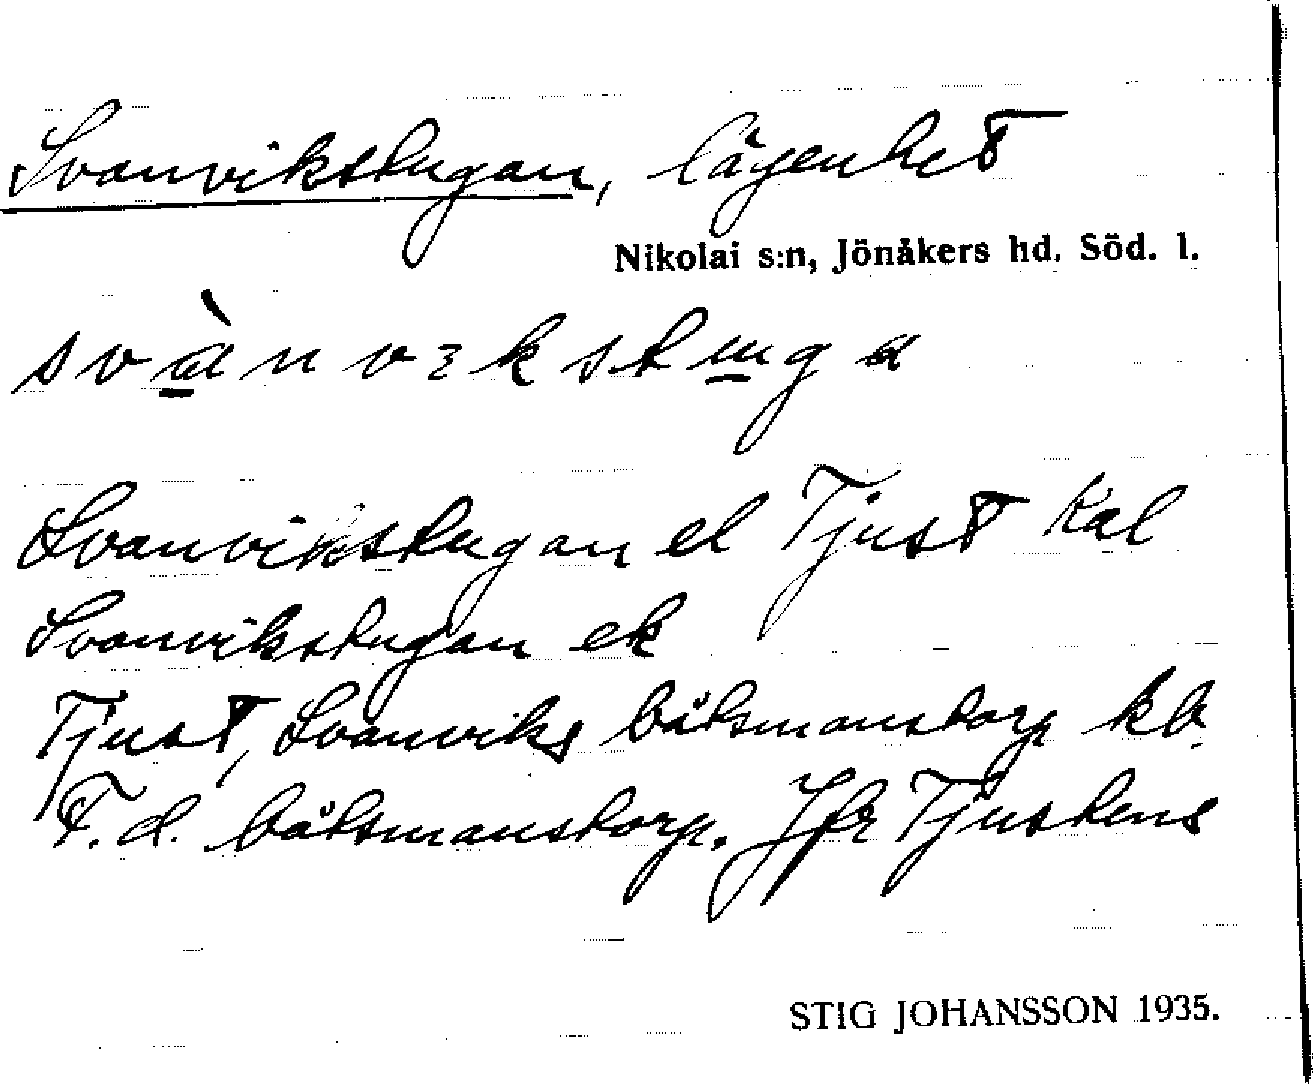 Svanvikstugan, lägenhet
Nikolai s:n, Jönåkers hd. Söd. l.
svànvɜkstuga
Svanvikstugan el Tjust kal
Svanvikstugan ek
Tjust, Svanviks båtsmanstorp kb.
F. d. båtsmanstorp. Jfr Tjustens
STIG JOHANSSON 1935.